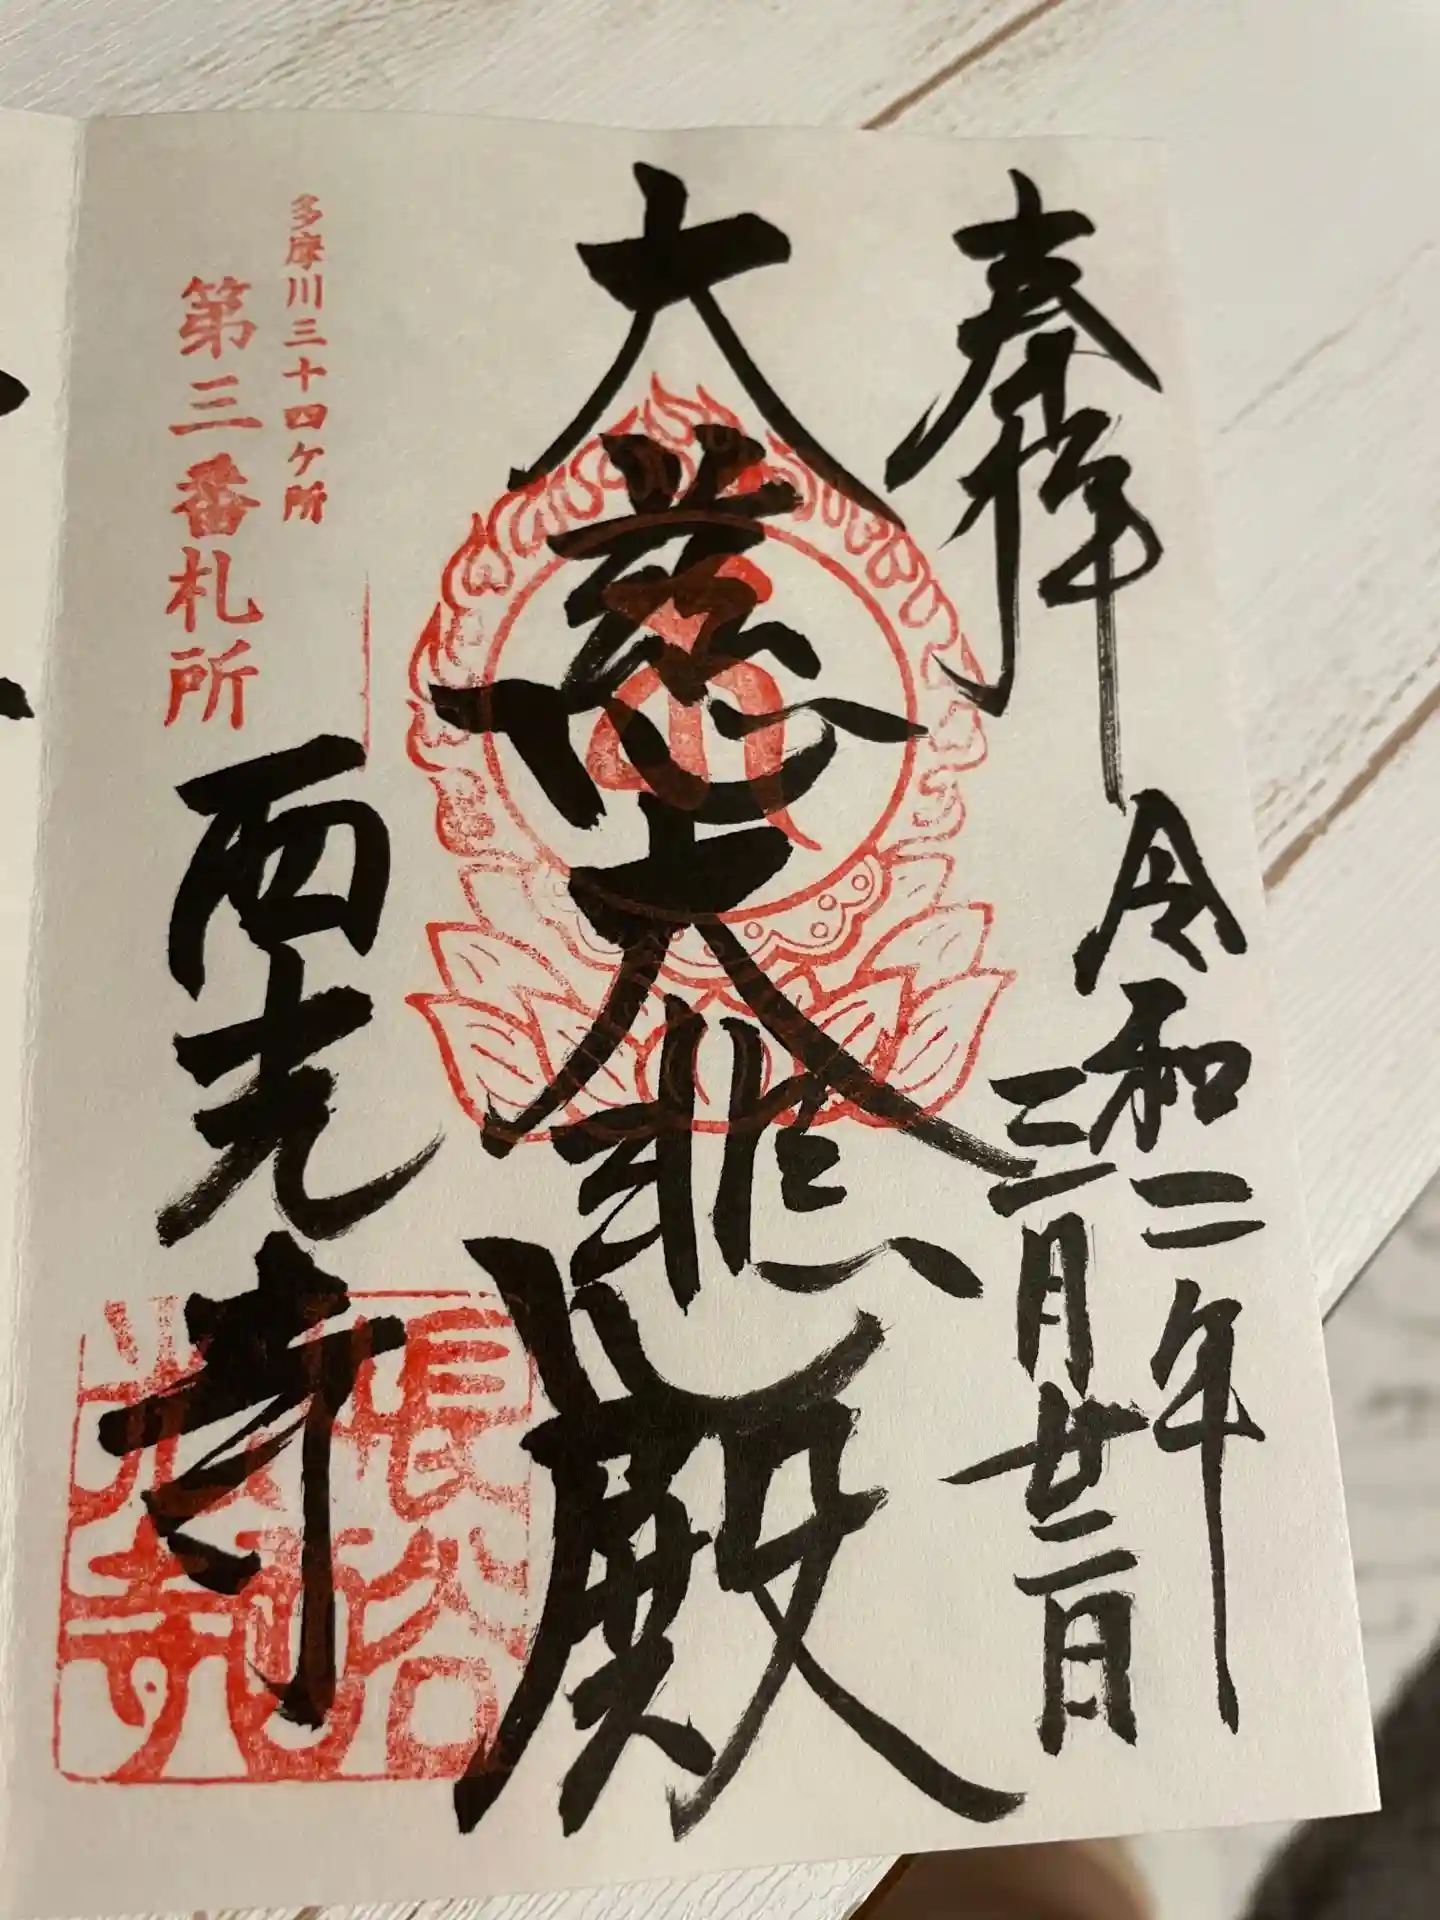 奉拝
令和二年
三月廿二日
大慈大悲殿
多摩川三十四ケ所
第三番札所
西光寺